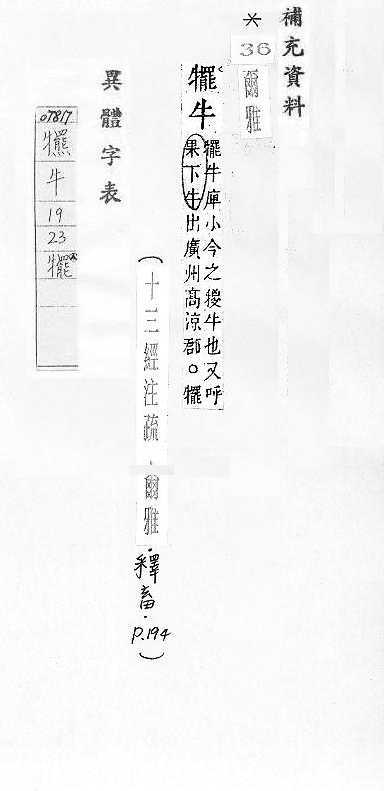 補充資料
*
36
爾雅
㹎牛
㹎牛庳小今之㹇牛也又呼
果下牛出廣州高涼郡○㹎
(十三經注疏.爾雅.釋畜.P.194)
異體字表
07817
牛
19
23
㹎